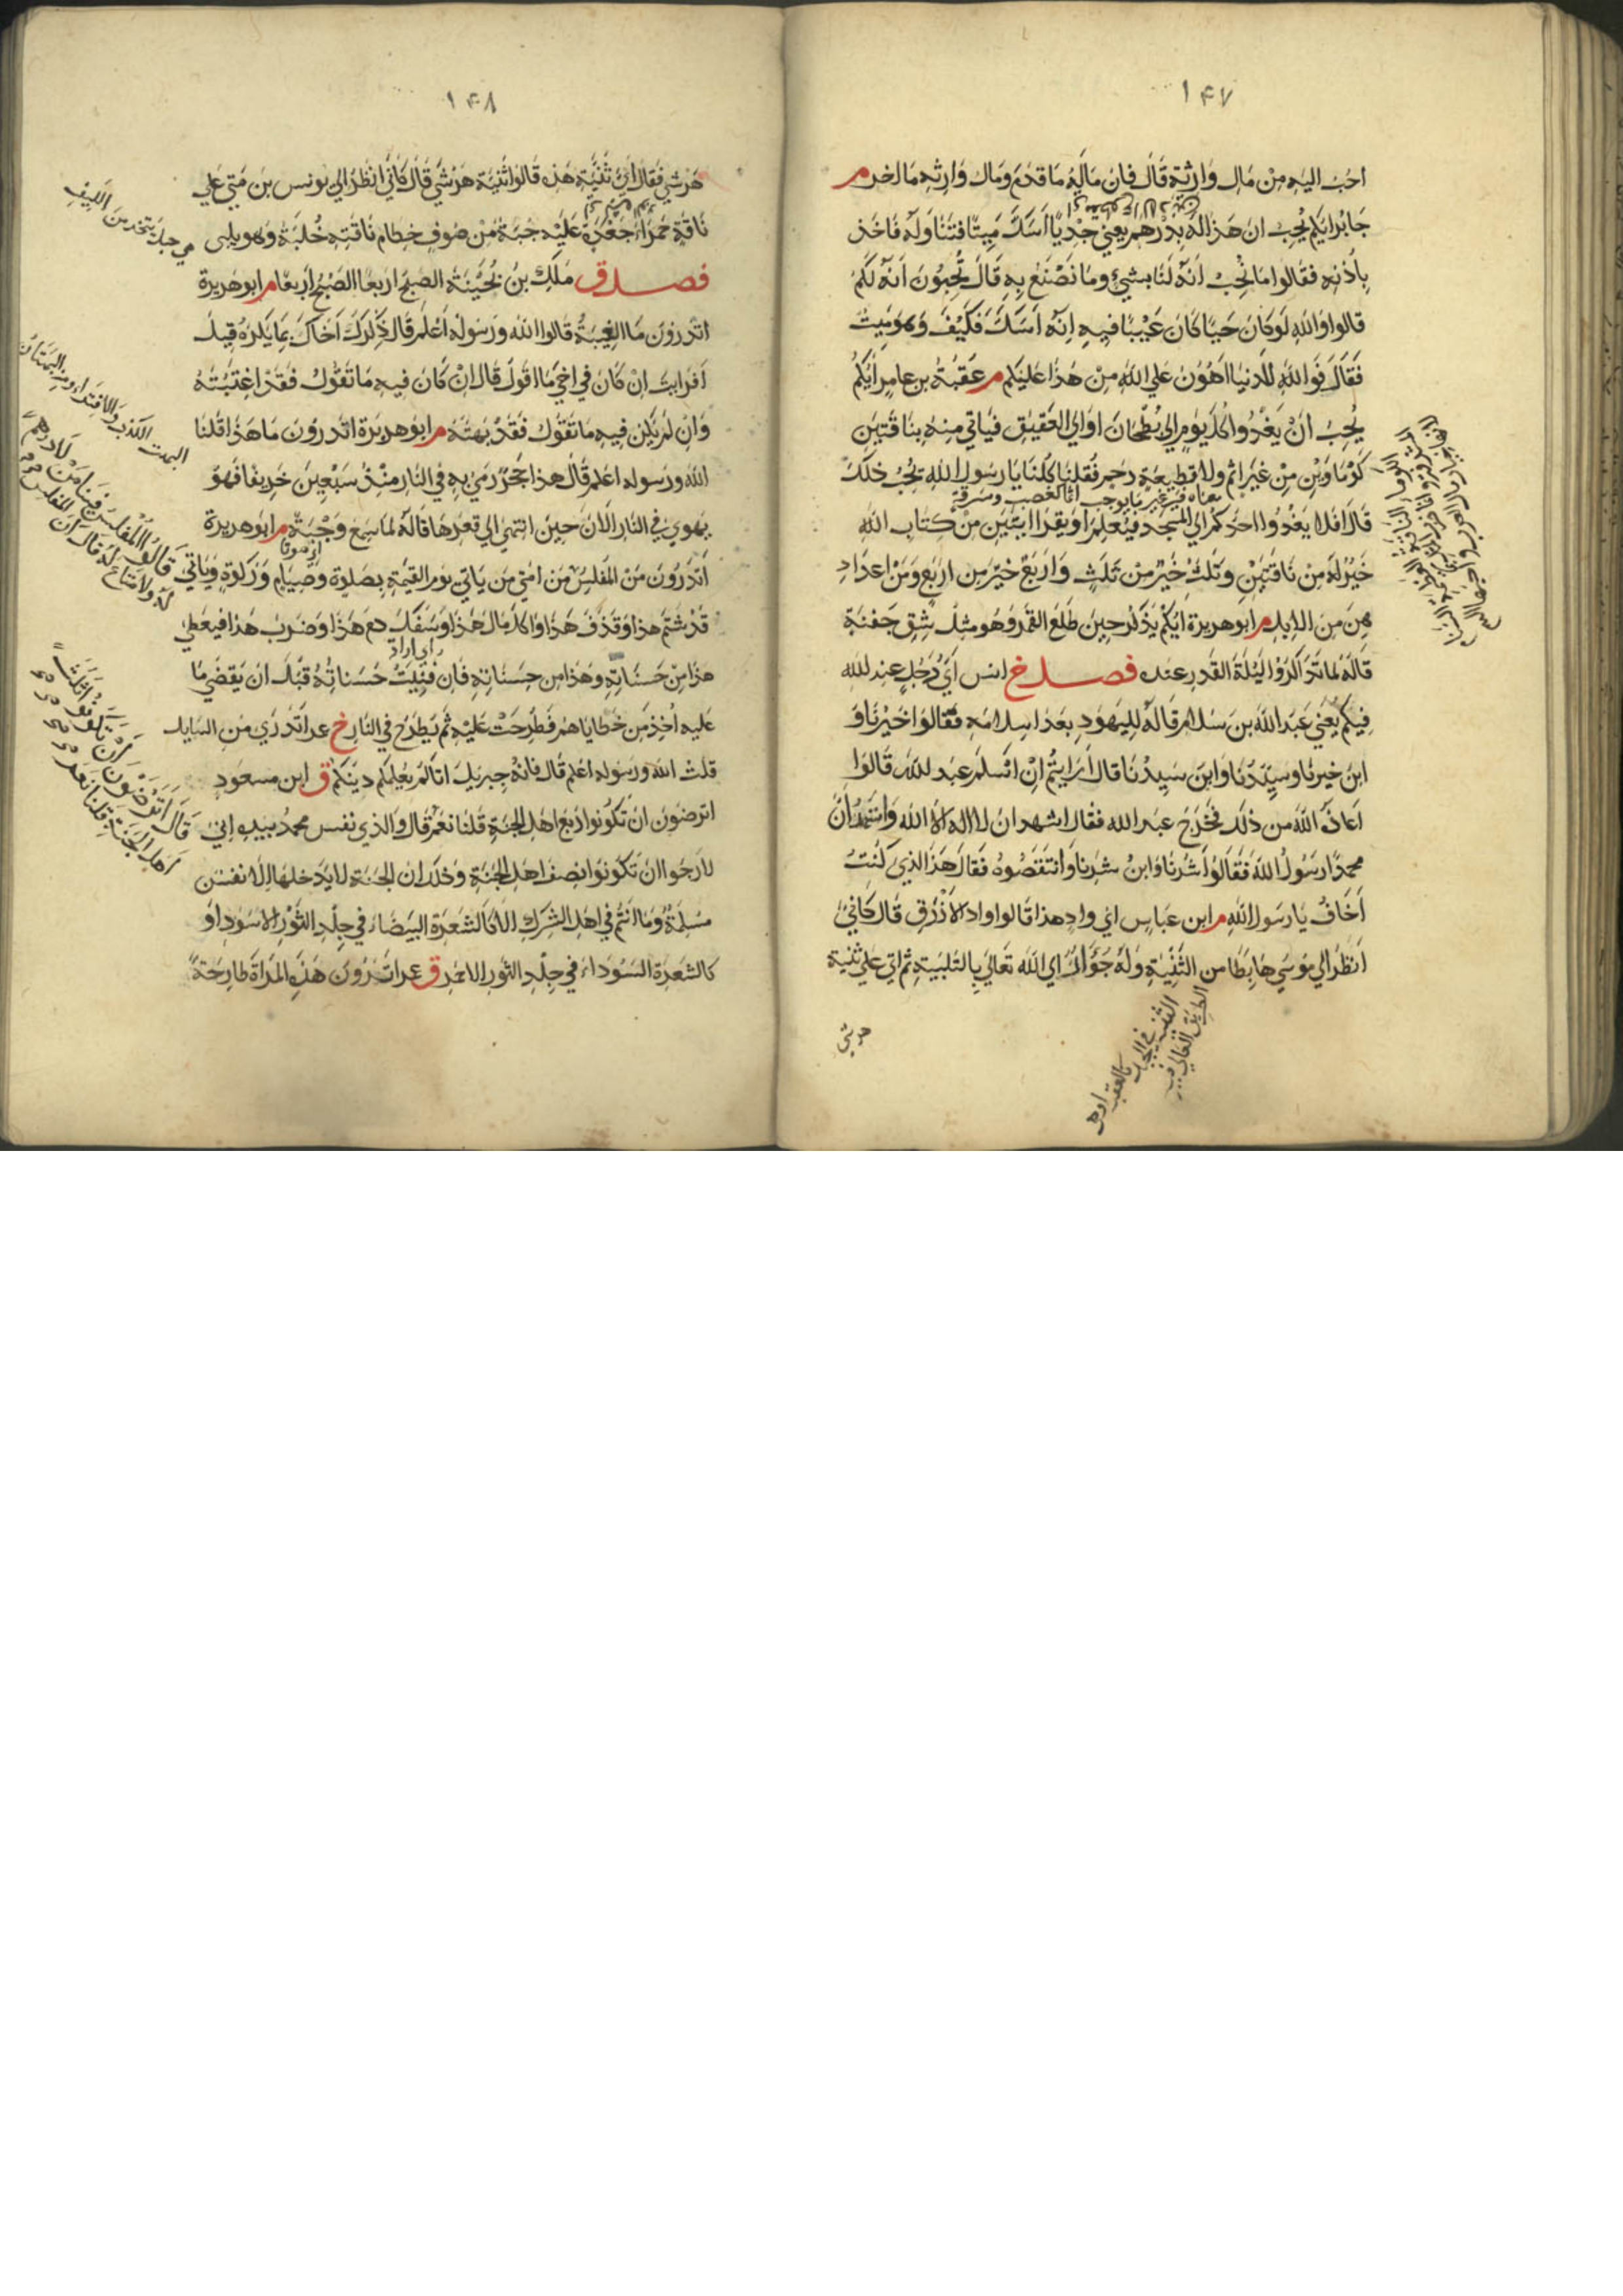 ١٤٧
احب اليه من مال وارثه قال فان ماله ما قدم ومال وارثه ما اخر م
جابر ايكم يحب ان هذا له بدرهم يعني جديا اسك ميتا فتناوله فاخذ
باذنه فقالوا ما نحب انه لنا بشيء وما نصنع به قال تحبون انه لكم
قالوا والله لو كان حيا كان عيبا فيه انه اسك فكيف وهو ميت
فقال فوالله للدنيا اهون علي الله من هذا عليكم م عقبة بن عامر ايكم
يحب ان يغدوا كل يوم الي بطحان او الي العقيق فياتي منه بناقتين
كوماوين من غير اثم ولا قطيعة رحم فقلنا كلنا يا رسول الله نحب ذلك
قال افلا يغدوا احدكم الي المسجد فيعلم او يقرا ايتين من كتاب الله
خير له من ناقتين وثلث خير من ثلث واربع خير من اربع ومن اعداد
هن من الابل م ابو هريرة ايكم يذكر حين طلع القمر وهو مثل شق جفنة
قاله لما تذاكروا ليلة القدر عنده فصل خ انس اي رجل عبد الله
فيكم يعني عبد الله بن سلام قاله لليهود بعد اسلامه فقالوا خيرنا و
ابن خيرنا وسيدنا وابن سيدنا قال ارايتم ان اسلم عبد الله قالوا
اعاذه الله من ذلك فخرج عبد الله فقال اشهد ان لا اله الا الله واشهد ان
محمدا رسول الله فقالوا شرنا وابن شرنا وانتقصوه فقال هذا الذي كنت
اخاف يا رسول الله م ابن عباس اي واد هذا قالوا وادي الازرق قال كاني
انظر الي موسي هابطا من الثنية وله جؤار الي الله تعالي بالتلبية ثم اتي علي ثنية
هرشي
١٤٨
هرشي فقال اي ثنية هذه قالوا ثنية هرشي قال كاني انظر الي يونس بن متي علي
ناقة حمراء جعدة عليه جبة من صوف خطام ناقته خلبة وهو يلبي
هي حبل يتخذ من الليف
فصل ق ملك بن بحينة الصبح اربعا الصبح اربعا م ابو هريرة
اتدرون ما الغيبة قالوا الله ورسوله اعلم قال ذكرك اخاك بما يكره قيل
افرايت ان كان في اخي ما اقول قال ان كان فيه ما تقول فقد اغتبته
وان لم يكن فيه ما تقول فقد بهته م ابو هريرة اتدرون ما هذا قلنا
البهت الكذب والافتراء ومنه البهتان
الله ورسوله اعلم قال هذا حجر رمي به في النار منذ سبعين خريفا فهو
يهوي في النار الان حين انتهي الي قعرها قاله لما سمع وجبة م ابو هريرة
اتدرون من المفلس من امتي من ياتي يوم القيمة بصلوة وصيام وزكوة وياتي
قالوا المفلس فينا من لا درهم
له ولا متاع له قال ان المفلس
قد شتم هذا وقذف هذا واكل مال هذا وسفك دم هذا وضرب هذا فيعطي
هذا من حسناته وهذا من حسناته فان فنيت حسناته قبل ان يقضي ما
عليه اخذ من خطاياهم فطرحت عليه ثم يطرح في النار خ عمر اتدري من السايل
قلت الله ورسوله اعلم قال فانه جبريل اتاكم يعلمكم دينكم ق ابن مسعود
اترضون ان تكونوا اربع اهل الجنة قلنا نعم قال والذي نفس محمد بيده اني
قال اترضون ان تكونوا ثلث
اهل الجنة قلنا نعم
لارجوا ان تكونوا نصف اهل الجنة وذلك ان الجنة لا يدخلها الا نفس
مسلمة وما انتم في اهل الشرك الا كالشعرة البيضاء في جلد الثور الاسود او
كالشعرة السوداء في جلد الثور الاحمر ق عمر اترون هذه المراة طارحة